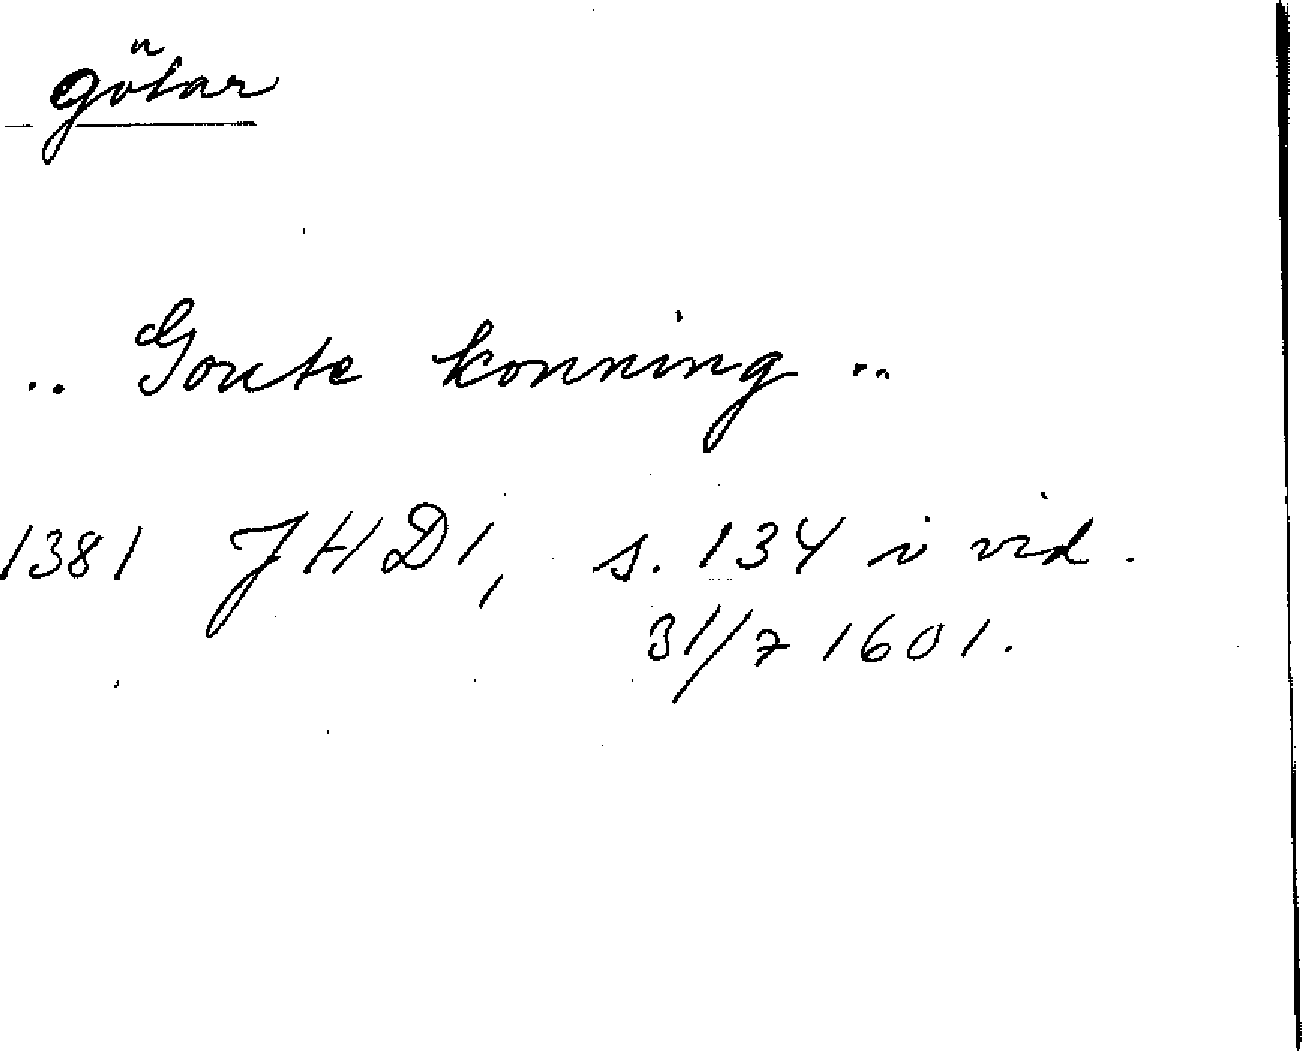 götar
.. Goute konning ..
1381 JHD1, s. 134 i vid.
31/7 1601.